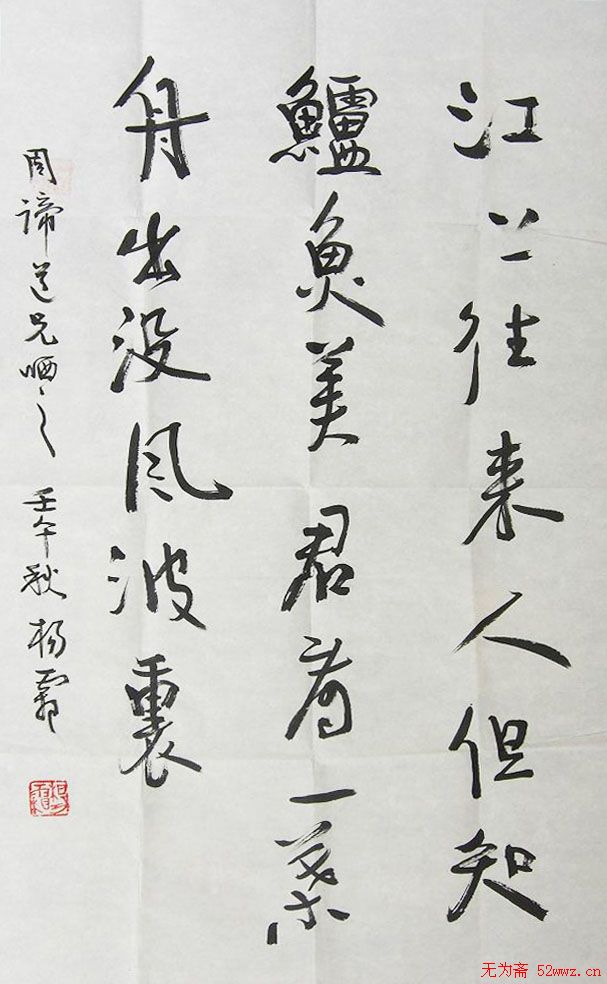 江上往来人但知
鱸魚美君看一葉
舟出没风波裏
周谛道兄哂之 壬午秋 杨
无为斋 52wwz.cn